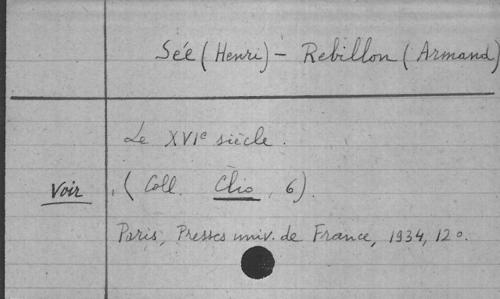 Sée (Henri) - Rebillon (Armand)
Le XVIe siècle.
Voir (Coll. Clio, 6).
Paris, Presses univ. de France, 1934, 12o.